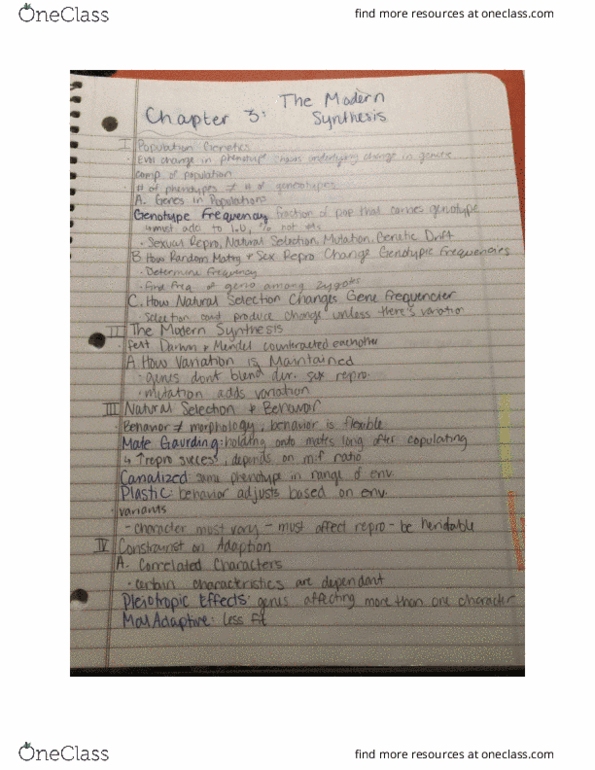 OneClass
find more resources at oneclass.com
Chapter 3: The Modern
Synthesis
I Population Genetics
· Evol change in phenotype shows underlying change in genetic
comp of population
· # of phenotypes ≠ # of genotypes
A. Genes in Populations
Genotype Frequency fraction of pop that carries genotype
must add to 1.0, % not
· Sexual Repro, Natural Selection, Mutation, Genetic Drift
B. How Random Mating & Sex Repro Change Genotypic Frequencies
· Determine frequency
· Find freq of geno among zygotes
C. How Natural Selection Changes Gene Frequencies
· Selection cant produce change unless there's variation
II The Modern Synthesis
· felt Darwin & Mendel counteracted eachother
A How Variation is Maintained
· genes dont blend dur. sex repro.
· mutation adds variation
III Natural Selection & Behavior
· Behavior ≠ morphology, behavior is flexible
Mate Gaurding: holding onto mates long after copulating
↳ ↑ repro success, depends on m:f ratio
Canalized: same phenotype in range of env.
Plastic: behavior adjusts based on env.
· variants
- character most vary - must affect repro - be heridable
IV Constraint on Adaption
A. Correlated Characters
· certain characteristics are dependant
Pleiotropic Effects: genes affecting more than one character
MalAdaptive: less fit
OneClass
find more resources at oneclass.com